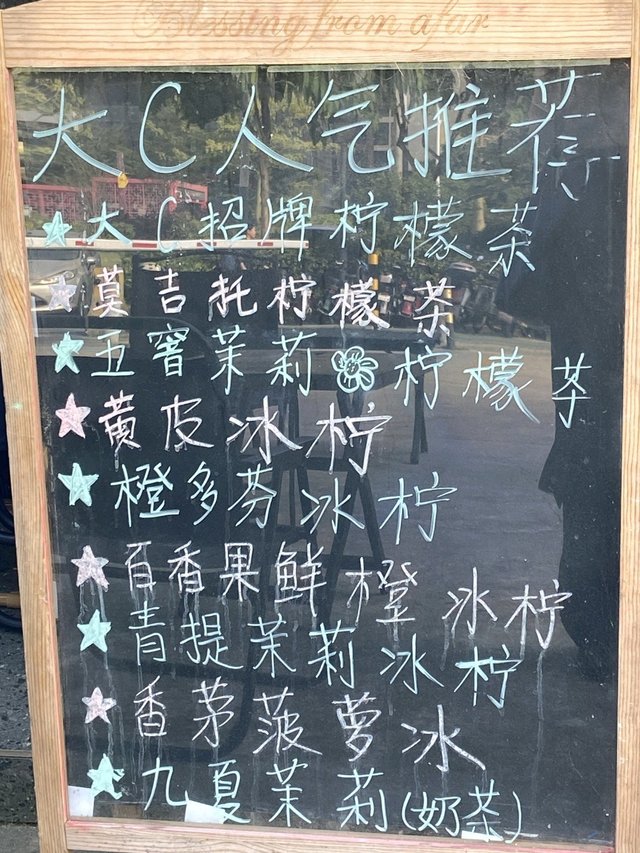 Blessing from afar
大C人气推荐
大C招牌柠檬茶
莫吉托柠檬茶
五窨茉莉柠檬茶
黄皮冰柠
橙多芬冰柠
百香果鲜橙冰柠
青提茉莉冰柠
香茅菠萝冰
九夏茉莉(奶茶)